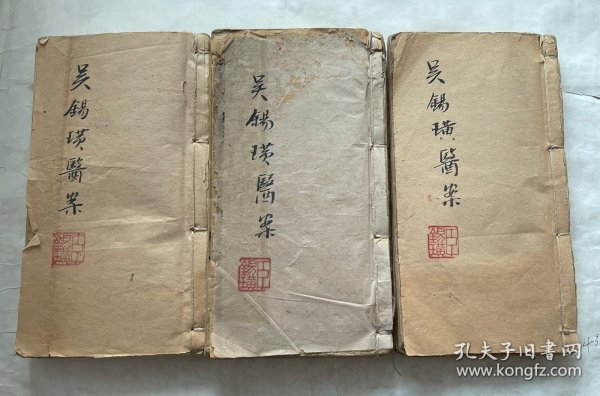 吴锡璜醫案
吴锡璜醫案
吴锡璜醫案
孔夫子旧书网
www.kongfz.com